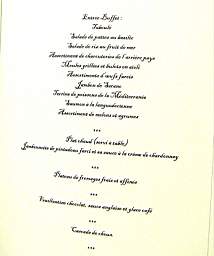 Entrée-Buffet :
Taboulé
Salade de pattes au basilic
Salade de riz au fruit de mer
Assortiment de charcuteries de l'arrière pays
Moules grillées et bulots en aïoli
Assortiments d'œufs farcis
Jambon de Serano
Terrine de poissons de la Méditerranée
Saumon à la languedocienne
Assortiment de melons et agrumes
***
Plat chaud (servi à table)
de pintadeau farci et sa sauce à la crème de chardonnay
***
Plateau de fromages frais et affinés
***
Feuillantine chocolat, sauce anglaise et glace café
***
Cascade de choux
***